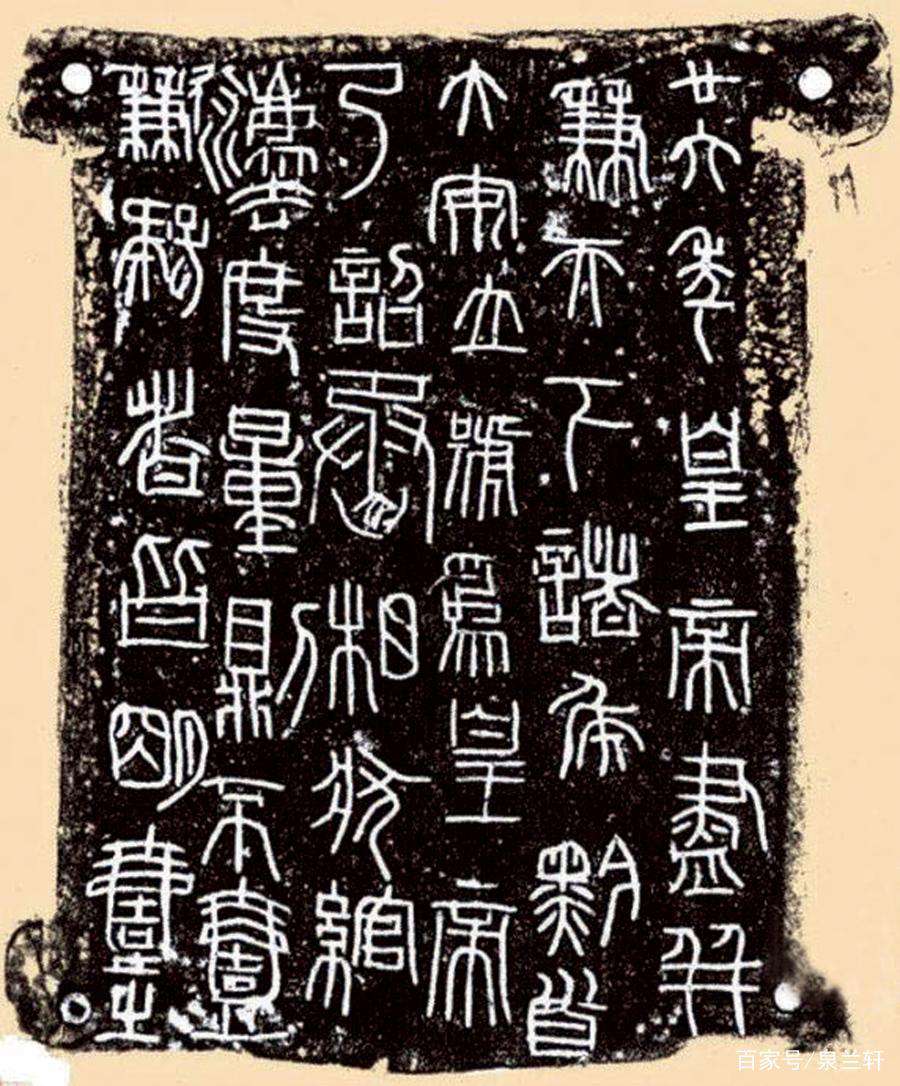 廿六年皇帝盡并
兼天下諸矦黔首
大安立號爲皇帝
乃詔丞相狀綰
灋度量鼎不壹
歉疑者皆明壹之
百家号/泉兰轩